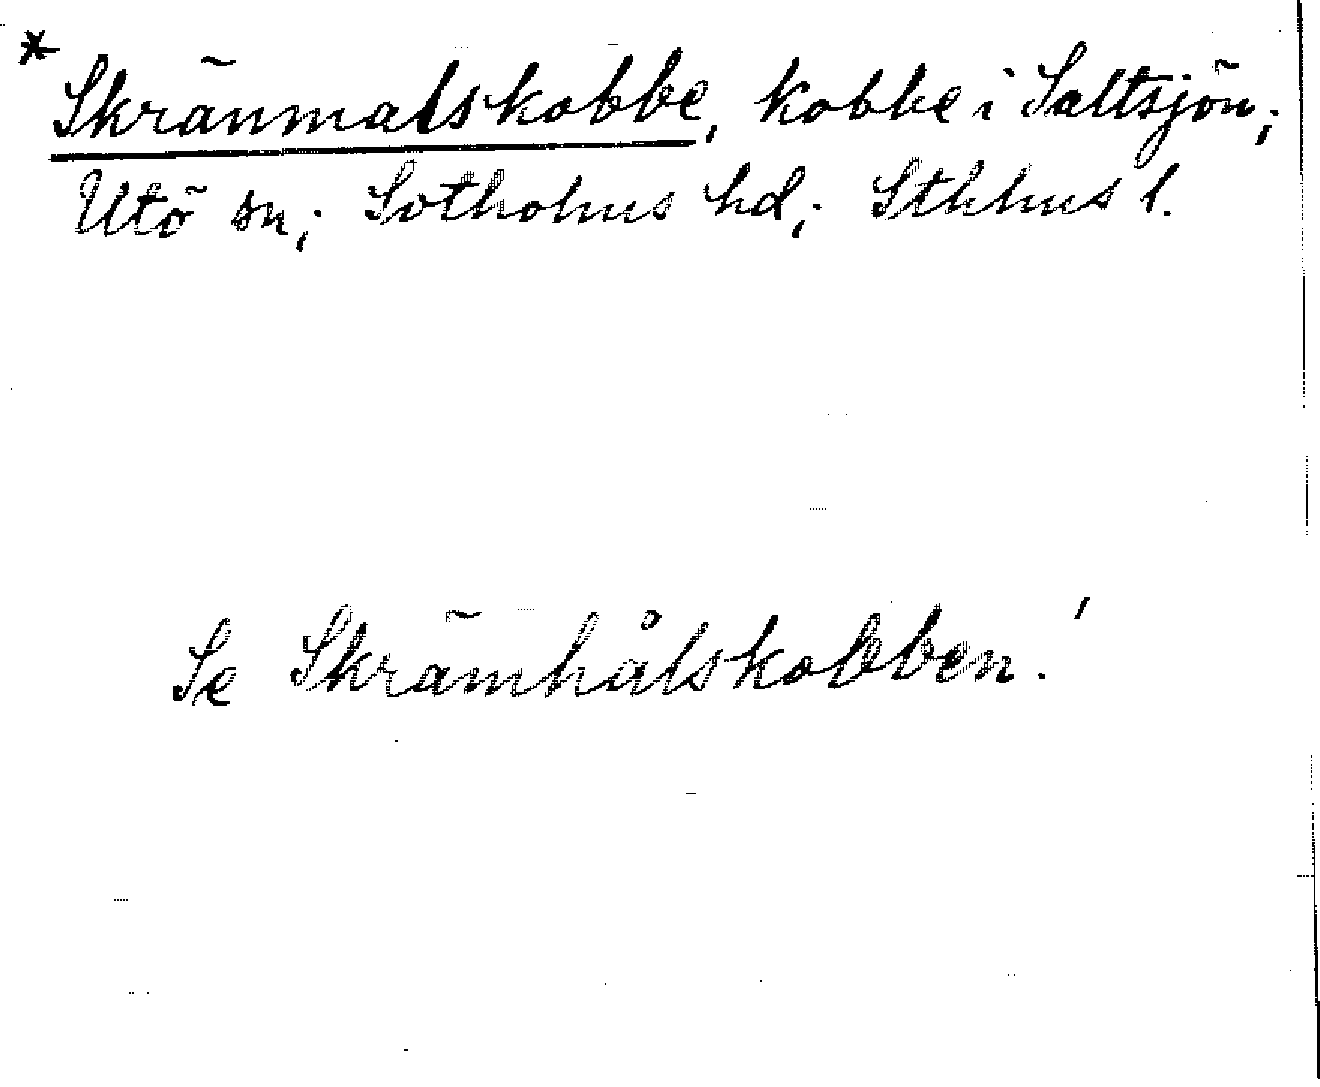 * Skränmalskobbe, kobbe i Saltsjön;
Utö sn; Sotholms hd; Sthlms l.
Se Skrämhålskobben!